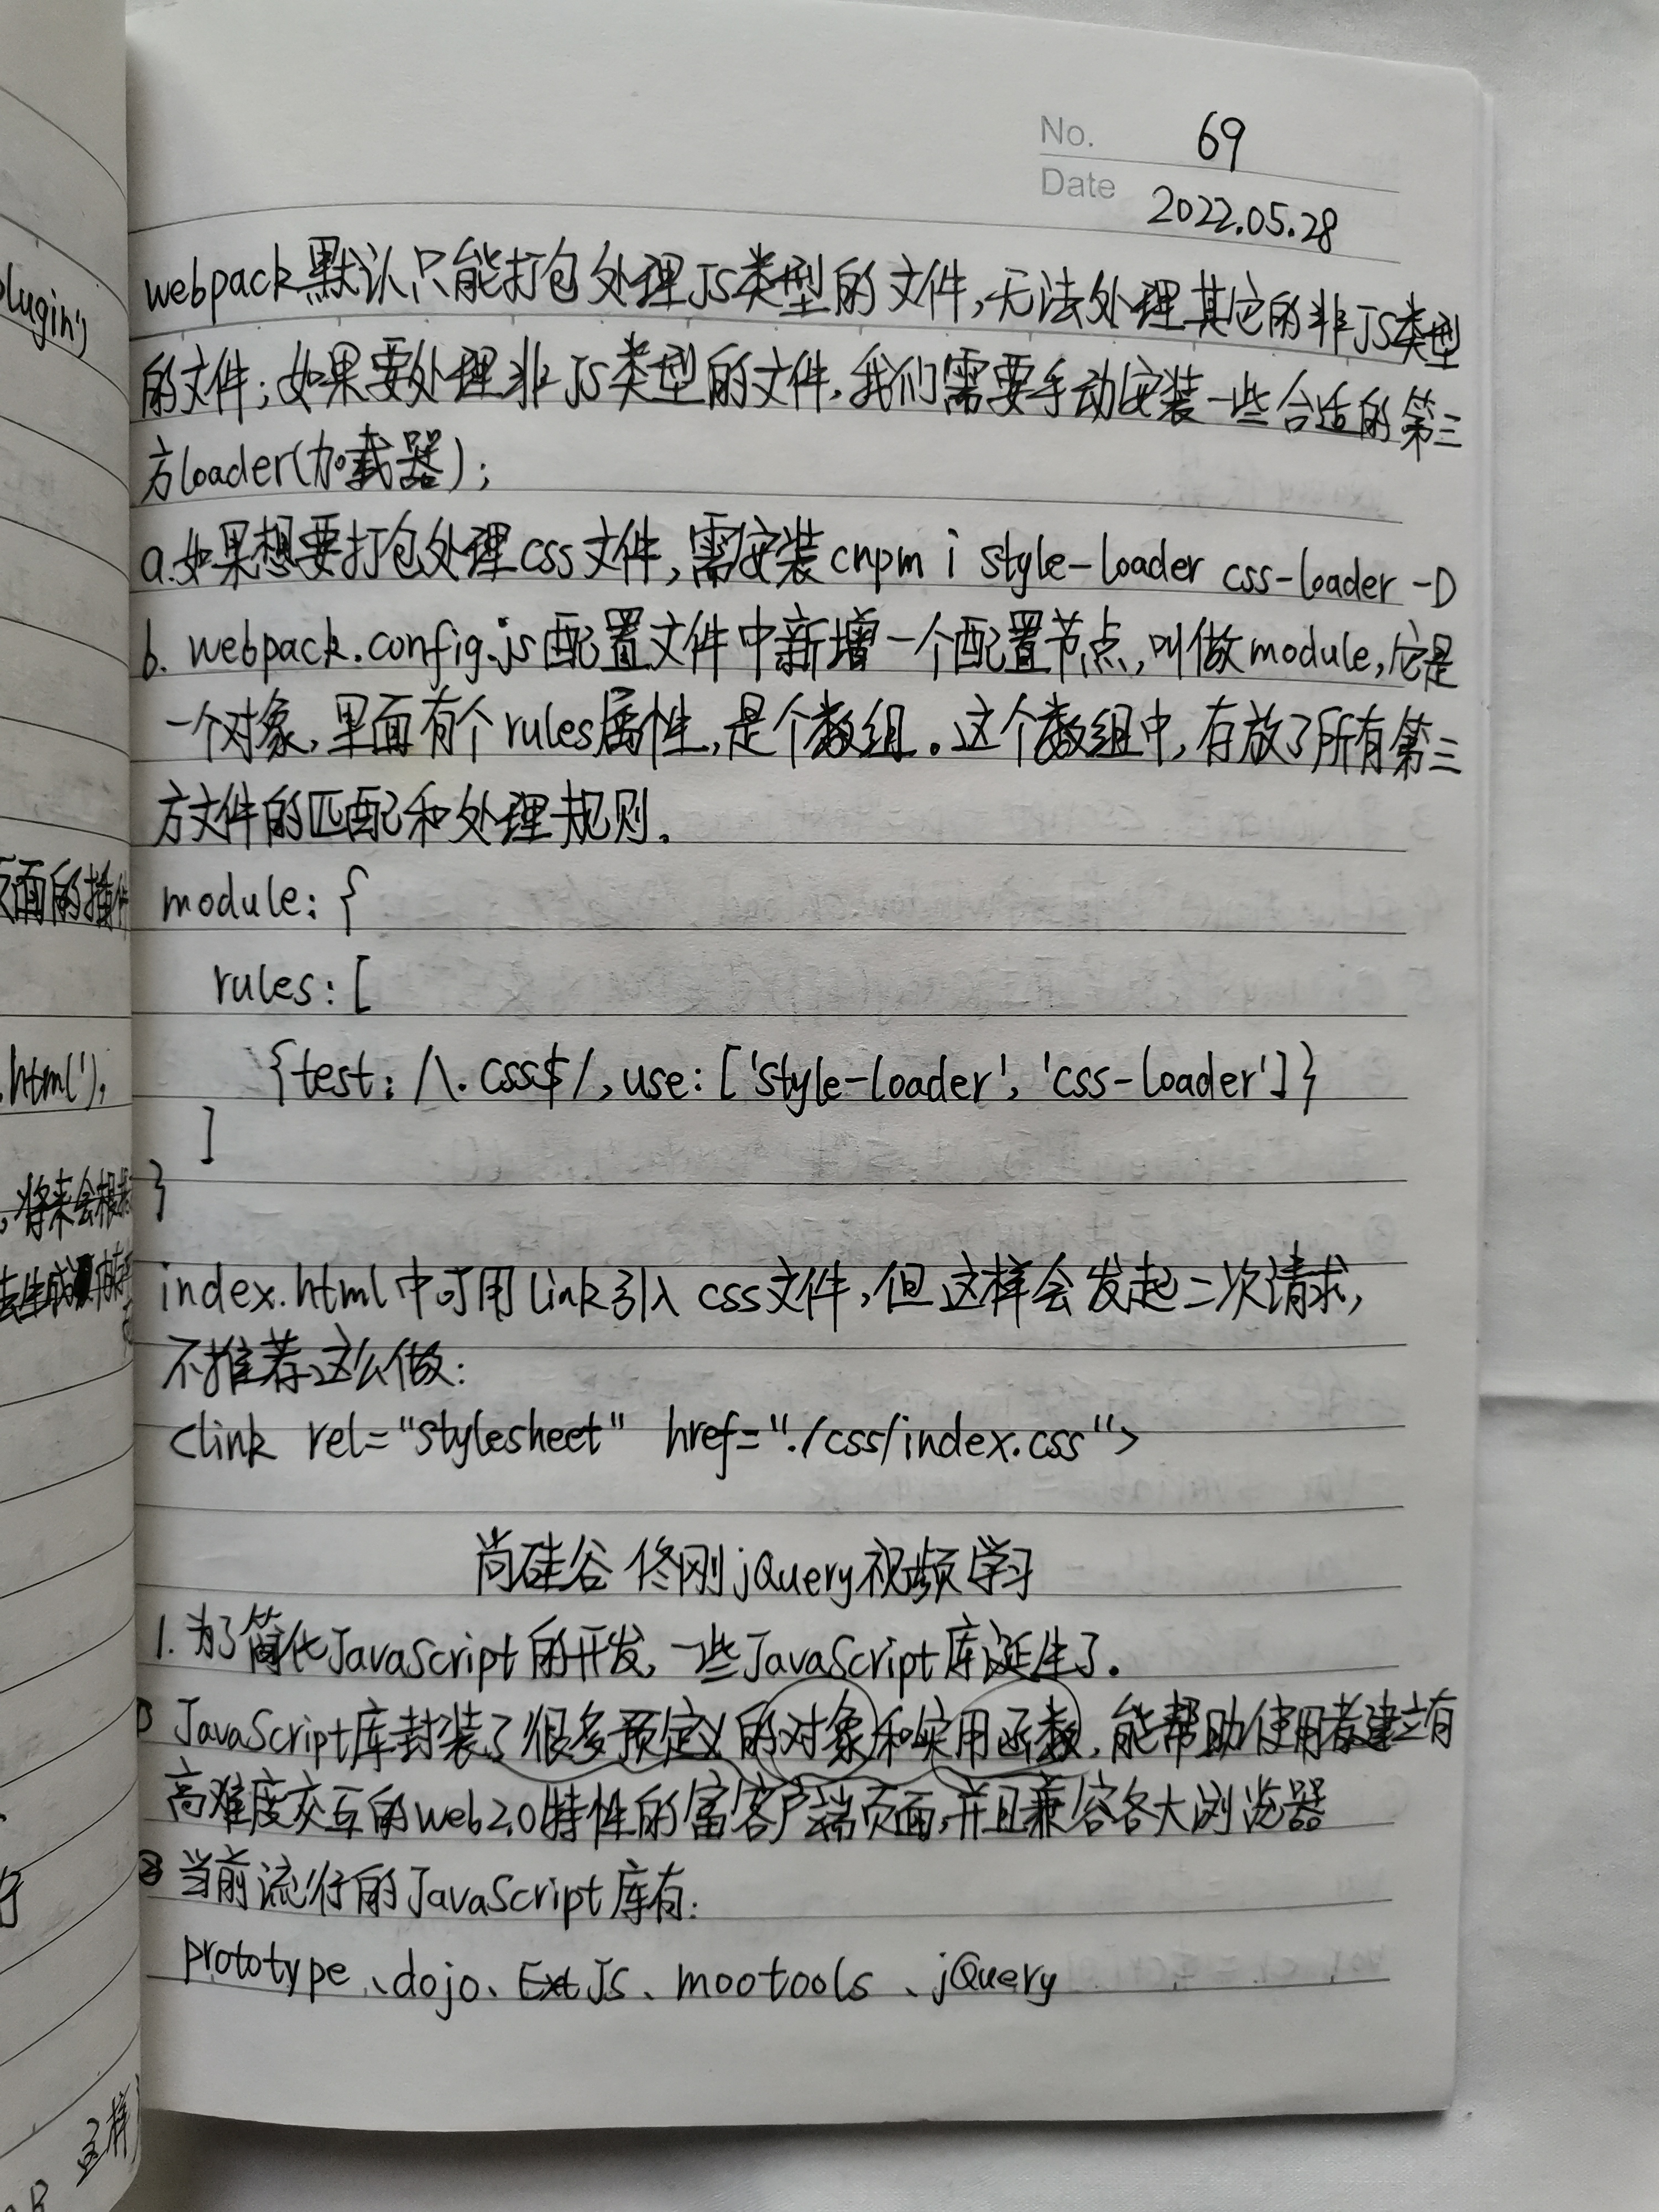 No. 69
Date 2022.05.28
webpack默认只能打包处理JS类型的文件,无法处理其它的非JS类型
的文件;如果要处理非JS类型的文件,我们需要手动安装一些合适的第三
方loader(加载器);
a.如果想要打包处理css文件,需安装cnpm i style-loader css-loader -D
b. webpack.config.js配置文件中新增一个配置节点,叫做module,它是
一个对象,里面有个rules属性,是个数组。这个数组中,存放了所有第三
方文件的匹配和处理规则。
module: {
rules: [
{test: /\.css$/, use: ['style-loader', 'css-loader']}
]
}
index.html中可用link引入css文件,但这样会发起二次请求,
不推荐这么做:
<link rel="stylesheet" href="./css/index.css">
尚硅谷 佟刚jQuery视频学习
1. 为了简化JavaScript的开发,一些JavaScript库诞生了.
① JavaScript库封装了很多预定义的对象和实用函数,能帮助使用者建立有
高难度交互的web2.0特性的富客户端页面,并且兼容各大浏览器
② 当前流行的JavaScript库有:
prototype、dojo、ExtJS、mootools、jQuery
plugin')
页面的插件
.html'),
,将来会根据
去生成